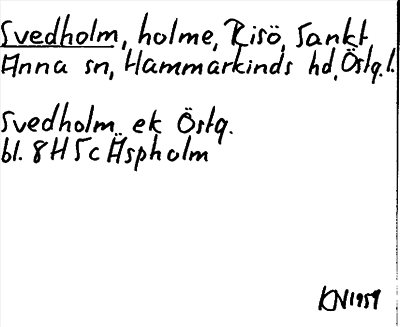 Svedholm, holme, Risö, Sankt
Anna sn, Hammarkinds hd, Östg.l.
Svedholm ek Östg.
bl. 8H5c Äspholm
KN1959